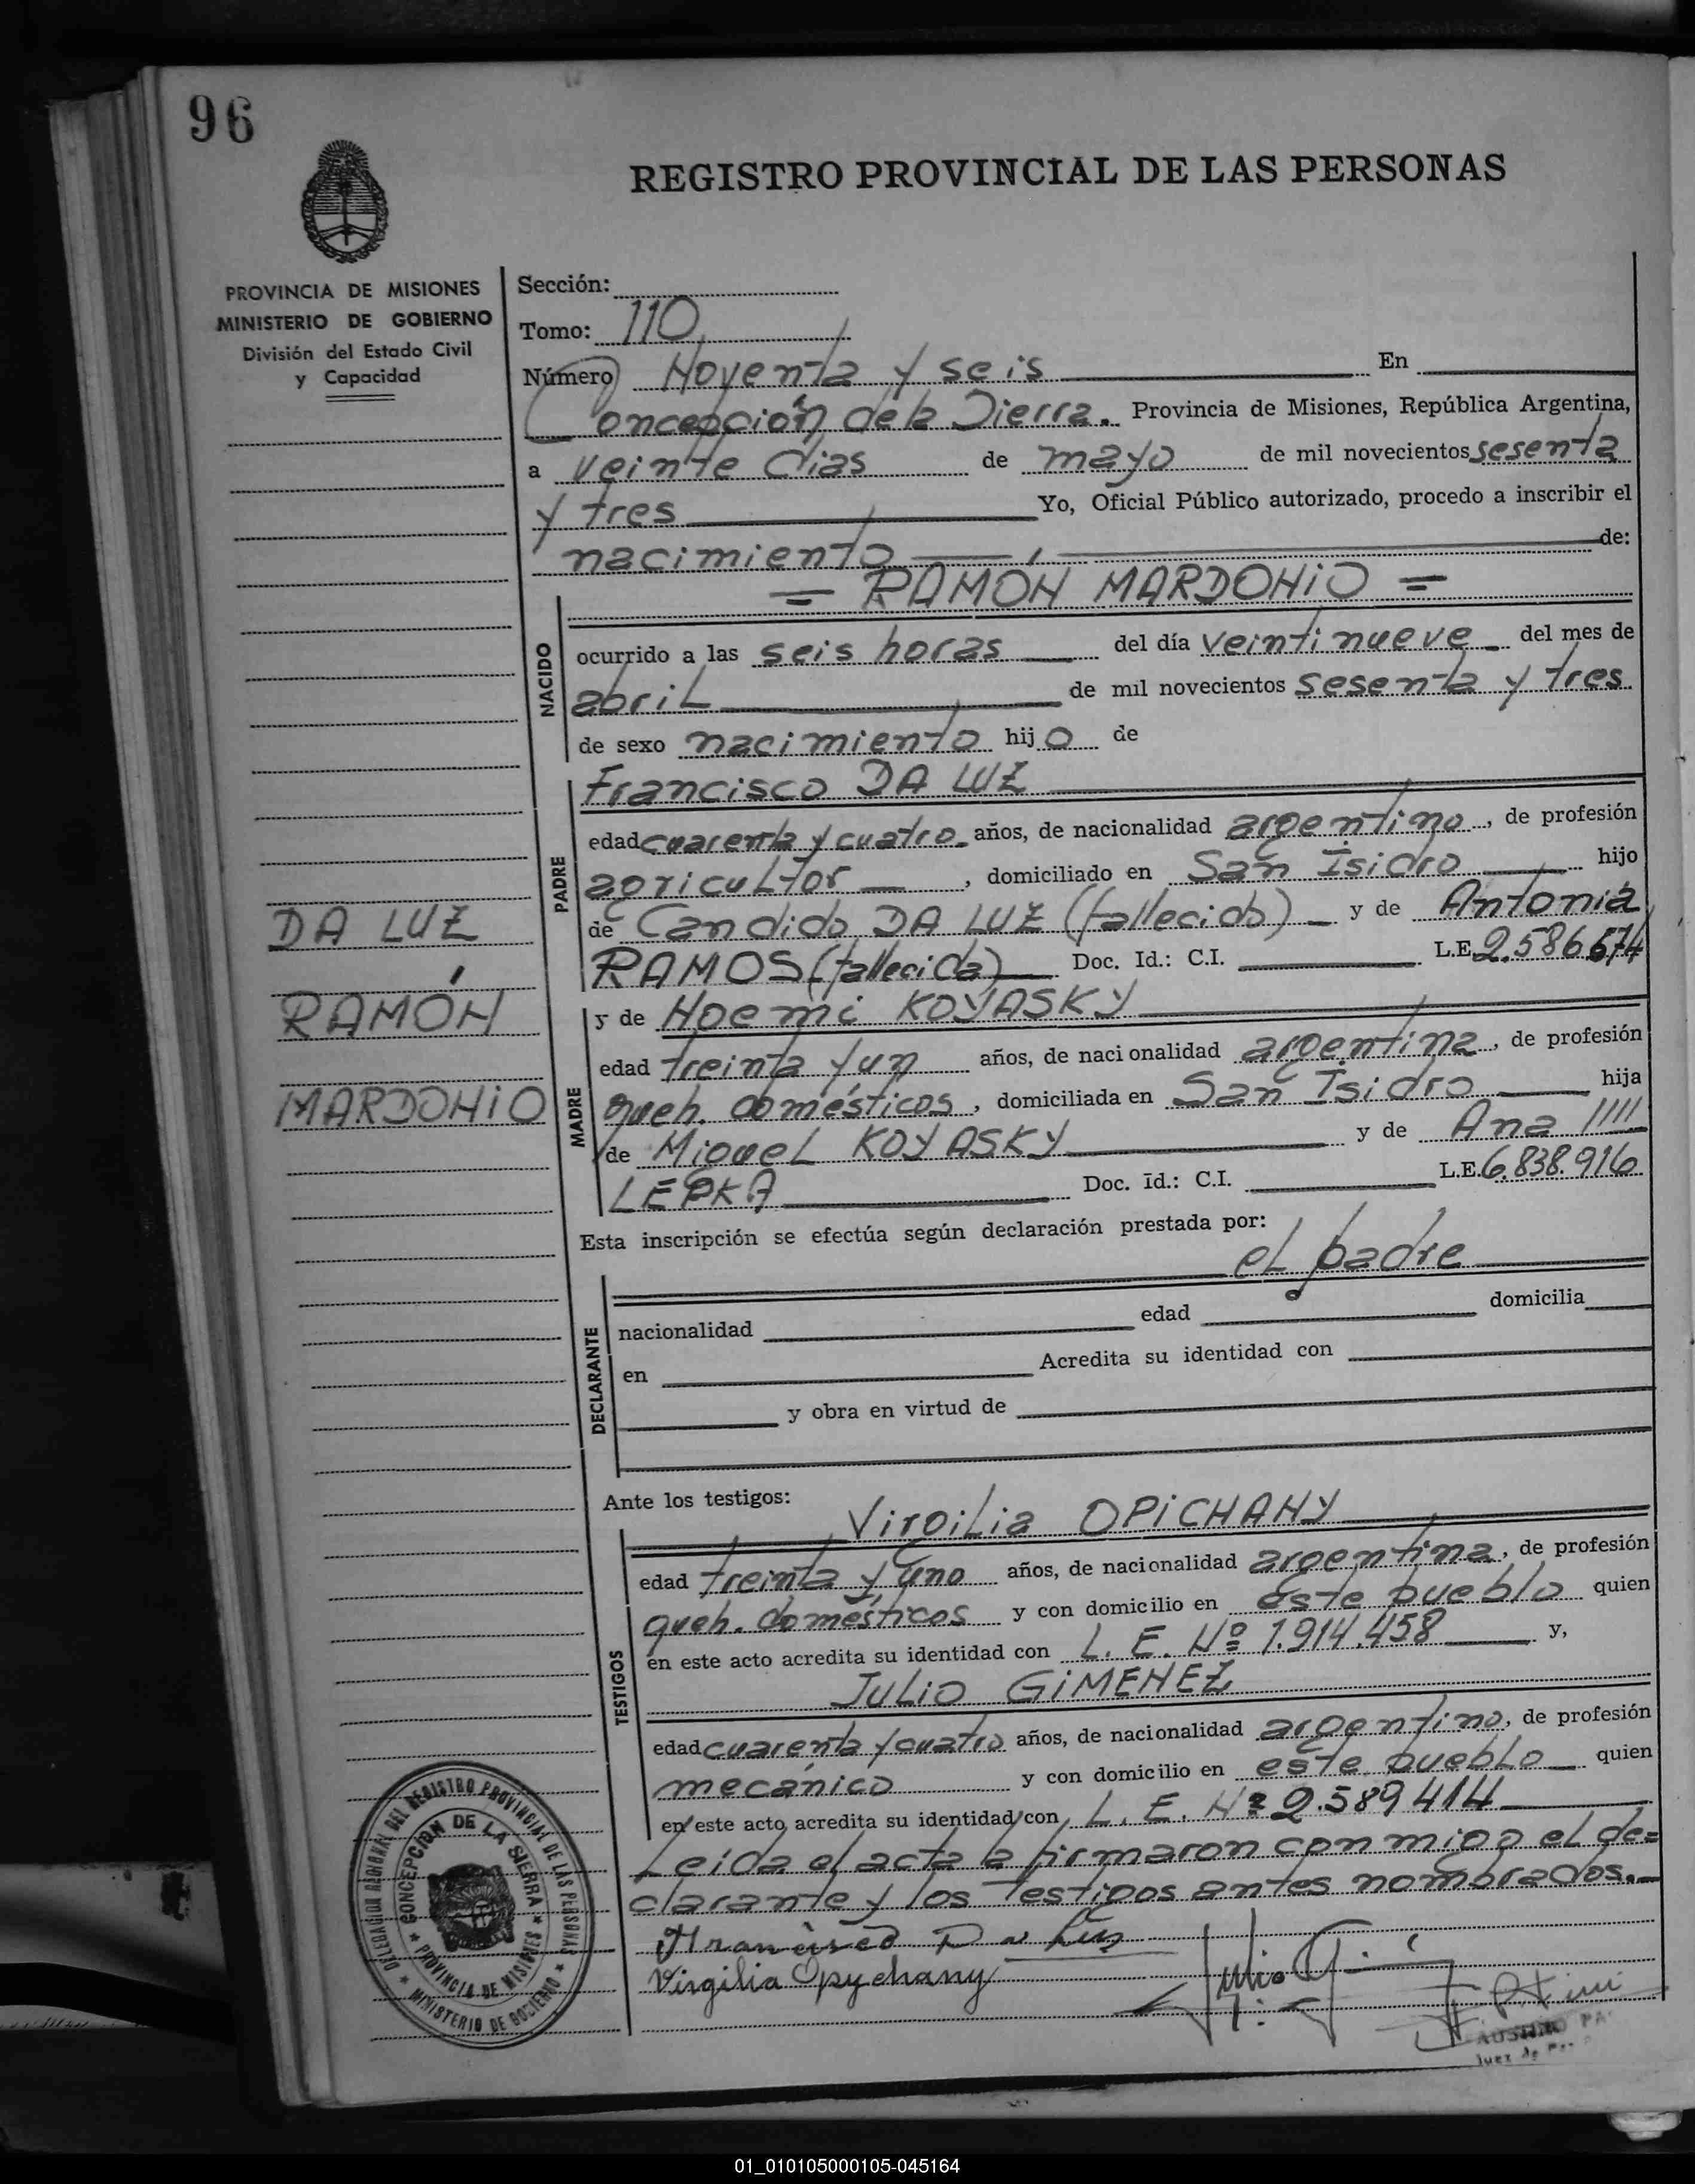 96
REGISTRO PROVINCIAL DE LAS PERSONAS
PROVINCIA DE MISIONES
MINISTERIO DE GOBIERNO
División del Estado Civil
y Capacidad
Sección:
Tomo: 110
Número Noventa y seis En
Concepción de la Sierra. Provincia de Misiones, República Argentina,
a veinte dias de mayo de mil novecientos sesenta
y tres Yo, Oficial Público autorizado, procedo a inscribir el
nacimiento de:
= RAMON MARDONIO =
NACIDO
ocurrido a las seis horas del día veintinueve del mes de
abril de mil novecientos sesenta y tres
de sexo nacimiento hijo de
Francisco DA LUZ
PADRE
edad cuarenta y cuatro años, de nacionalidad argentino, de profesión
agricultor, domiciliado en San Isidro hijo
de Candido DA LUZ (fallecido) y de Antonia
RAMOS (fallecida) Doc. Id.: C.I. L.E. 2.586674
DA LUZ
RAMÓN
MARDONIO
MADRE
y de Noemi KOVASKY
edad treinta y un años, de nacionalidad argentina, de profesión
queh. domésticos, domiciliada en San Isidro hija
de Miguel KOVASKY y de Ana
LEPKA Doc. Id.: C.I. L.E. 6.838.916
Esta inscripción se efectúa según declaración prestada por:
el padre
DECLARANTE
nacionalidad edad domicilia
en Acredita su identidad con
y obra en virtud de
Ante los testigos:
Virgilia OPICHANY
TESTIGOS
edad treinta y uno años, de nacionalidad argentina, de profesión
queh. domésticos y con domicilio en este pueblo quien
en este acto acredita su identidad con L. E. Nº 1.914.458 y,
JULIO GIMENEZ
edad cuarenta y cuatro años, de nacionalidad argentino, de profesión
mecánico y con domicilio en este pueblo quien
en este acto acredita su identidad con L. E. Nº 2.589414
Leida el acta la firmaron conmigo el de=
clarante y los testigos antes nombrados.
Francisco Da Luz
Virgilia Opychany
Julio
DELEGACION REGIONAL DEL REGISTRO PROVINCIAL DE LAS PERSONAS
CONCEPCIÓN DE LA SIERRA
PROVINCIA DE MISIONES
MINISTERIO DE GOBIERNO
Juez de
01_010105000105-045164